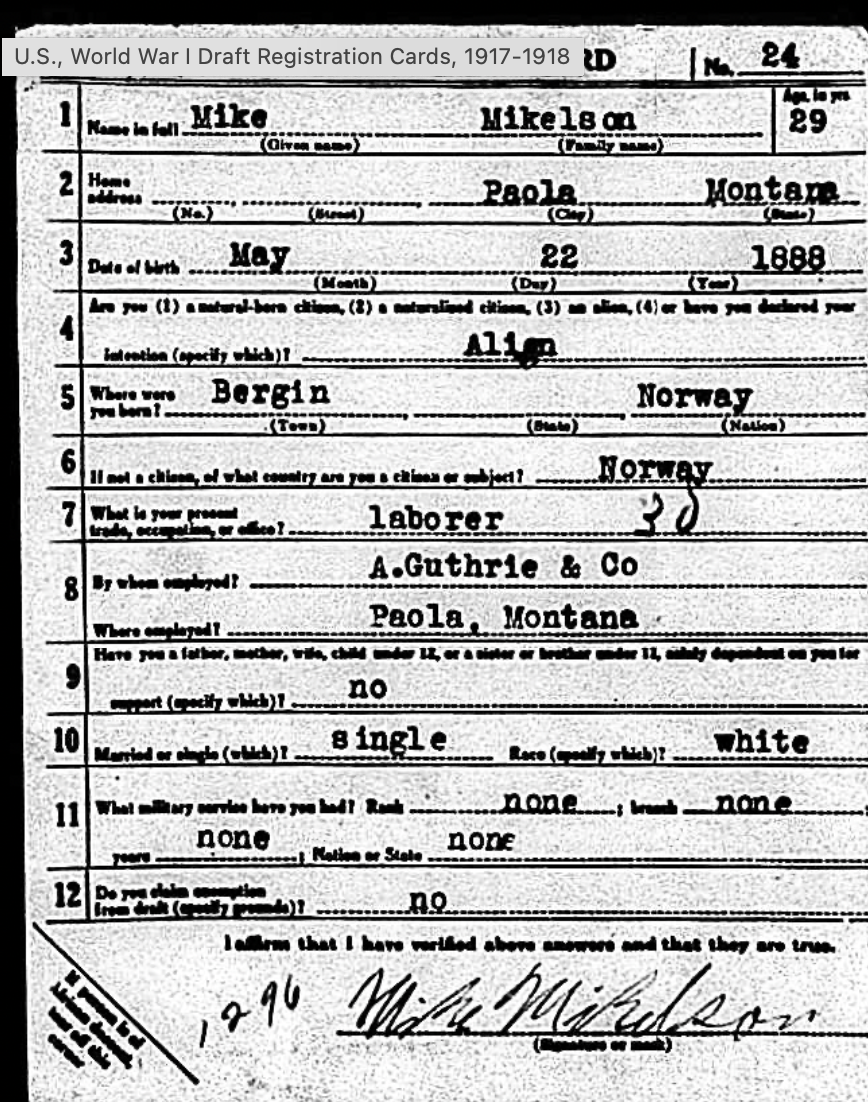 U.S., World War I Draft Registration Cards, 1917-1918
RD No. 24
1 Name in full Mike Mikelson Age, in yrs 29
(Given name) (Family name)
2 Home address Paola Montana
(No.) (Street) (City) (State)
3 Date of birth May 22 1888
(Month) (Day) (Year)
Are you (1) a natural-born citizen, (2) a naturalized citizen, (3) an alien, (4) or have you declared your
4 intention (specify which)? Align
5 Where were you born? Bergin Norway
(Town) (State) (Nation)
6 If not a citizen, of what country are you a citizen or subject? Norway
7 What is your present trade, occupation, or office? laborer 30
8 By whom employed? A.Guthrie & Co
Where employed? Paola, Montana
9 Have you a father, mother, wife, child under 12, or a sister or brother under 12, solely dependent on you for
support (specify which)? no
10 Married or single (which)? single Race (specify which)? white
11 What military service have you had? Rank none ; branch none ;
years none ; Nation or State none
12 Do you claim exemption from draft (specify grounds)? no
I affirm that I have verified above answers and that they are true.
1296
Mike Mikelson
(Signature or mark)
If person is of
African descent,
tear off this
corner